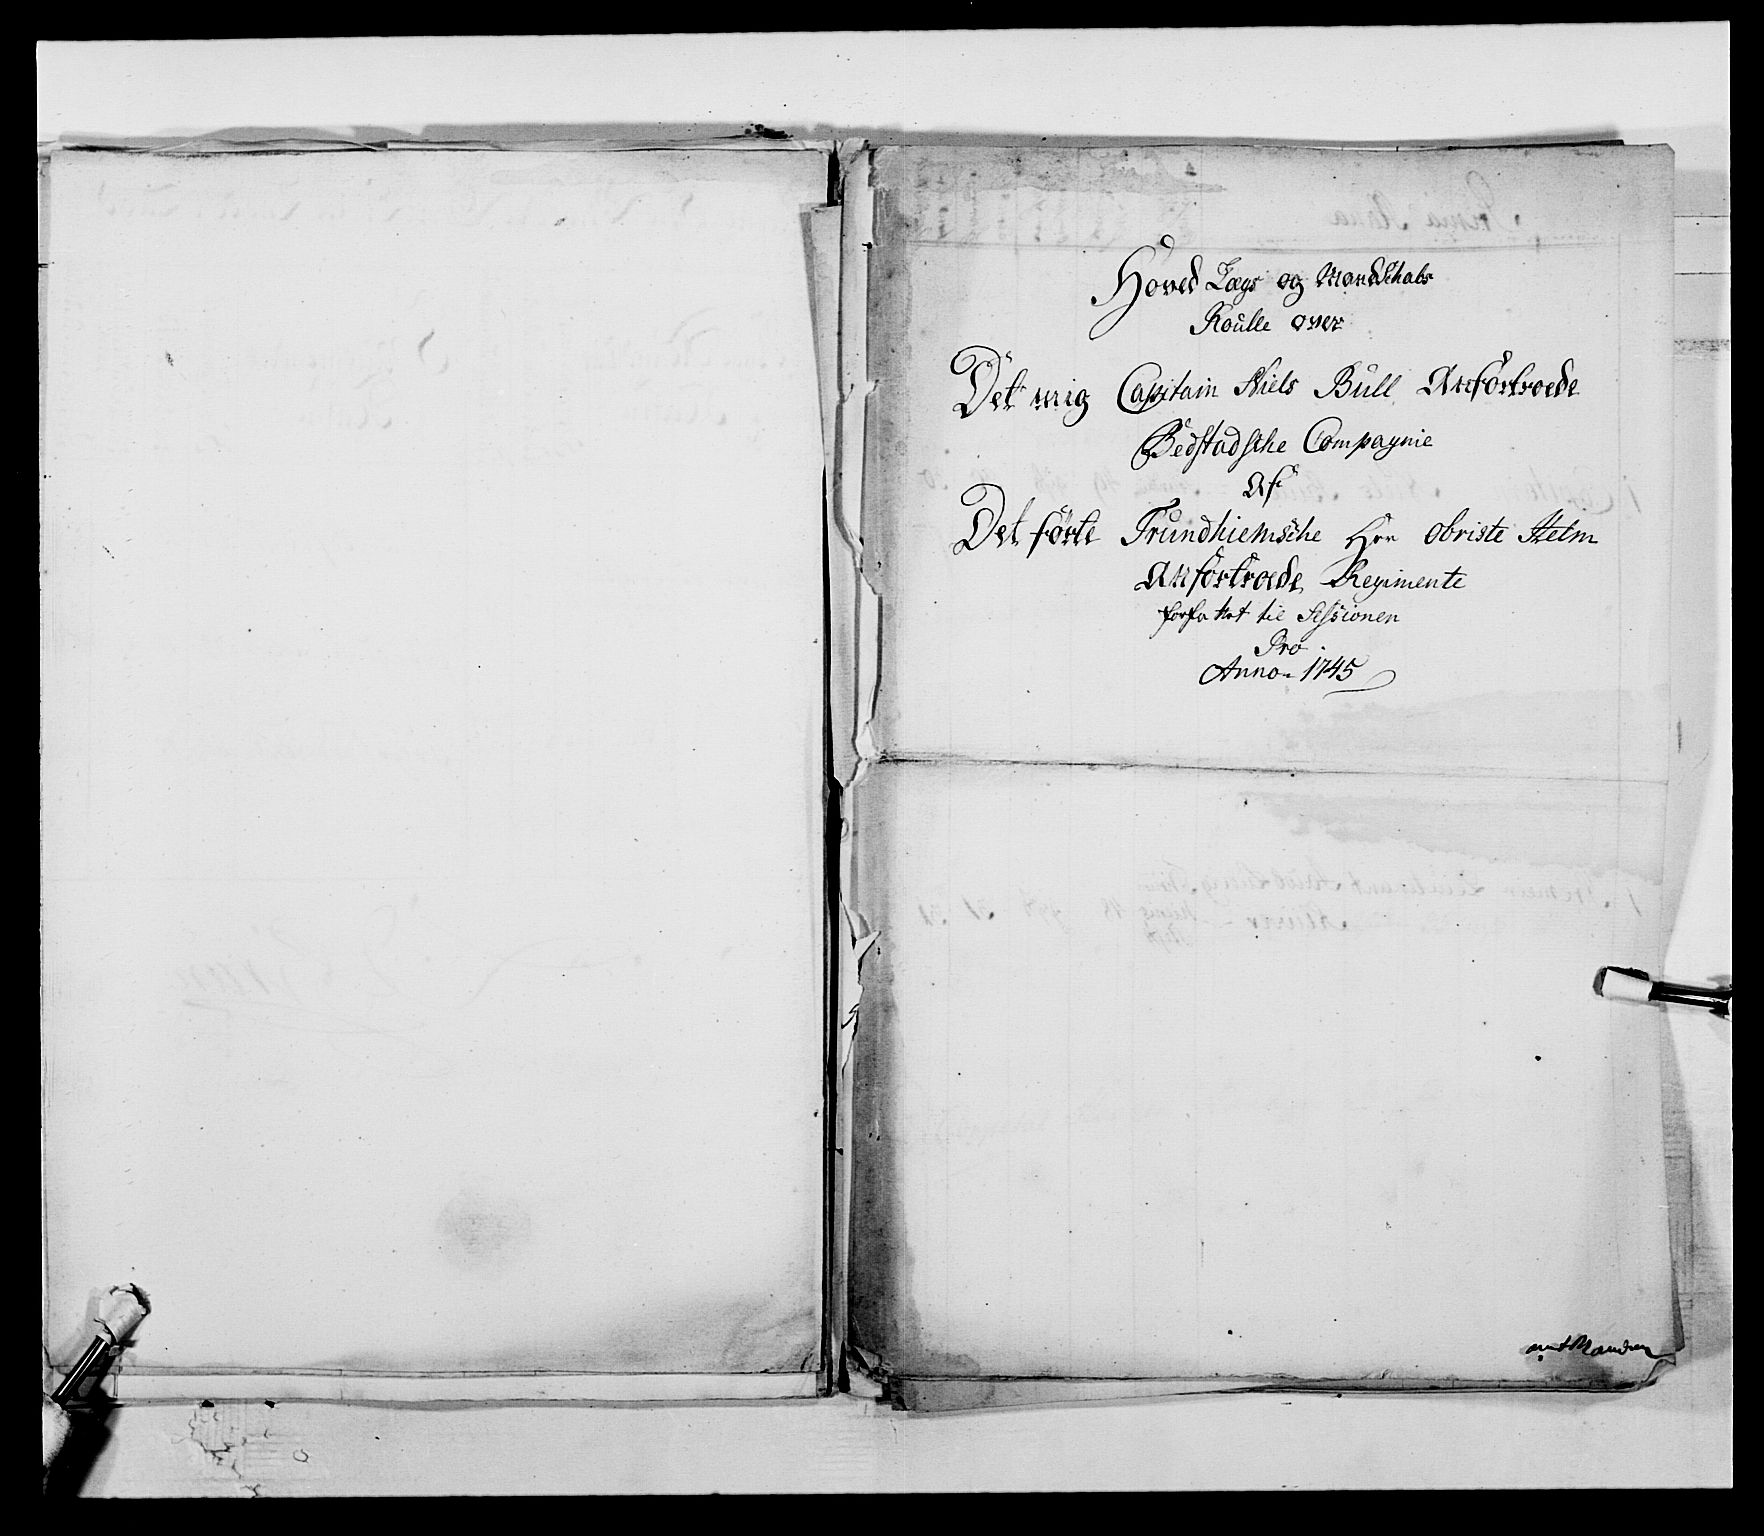 Hoved Lægs og Mandskabs
Roulle over
Det mig Capitain Niels Bull Anfortroede
Bedstadsche Compagnie
Af
Det förte Trundhiemsche Hrr Obriste Helm
Anfortroede Regimente
forfattet til Sessionen
Pro
Anno 1745